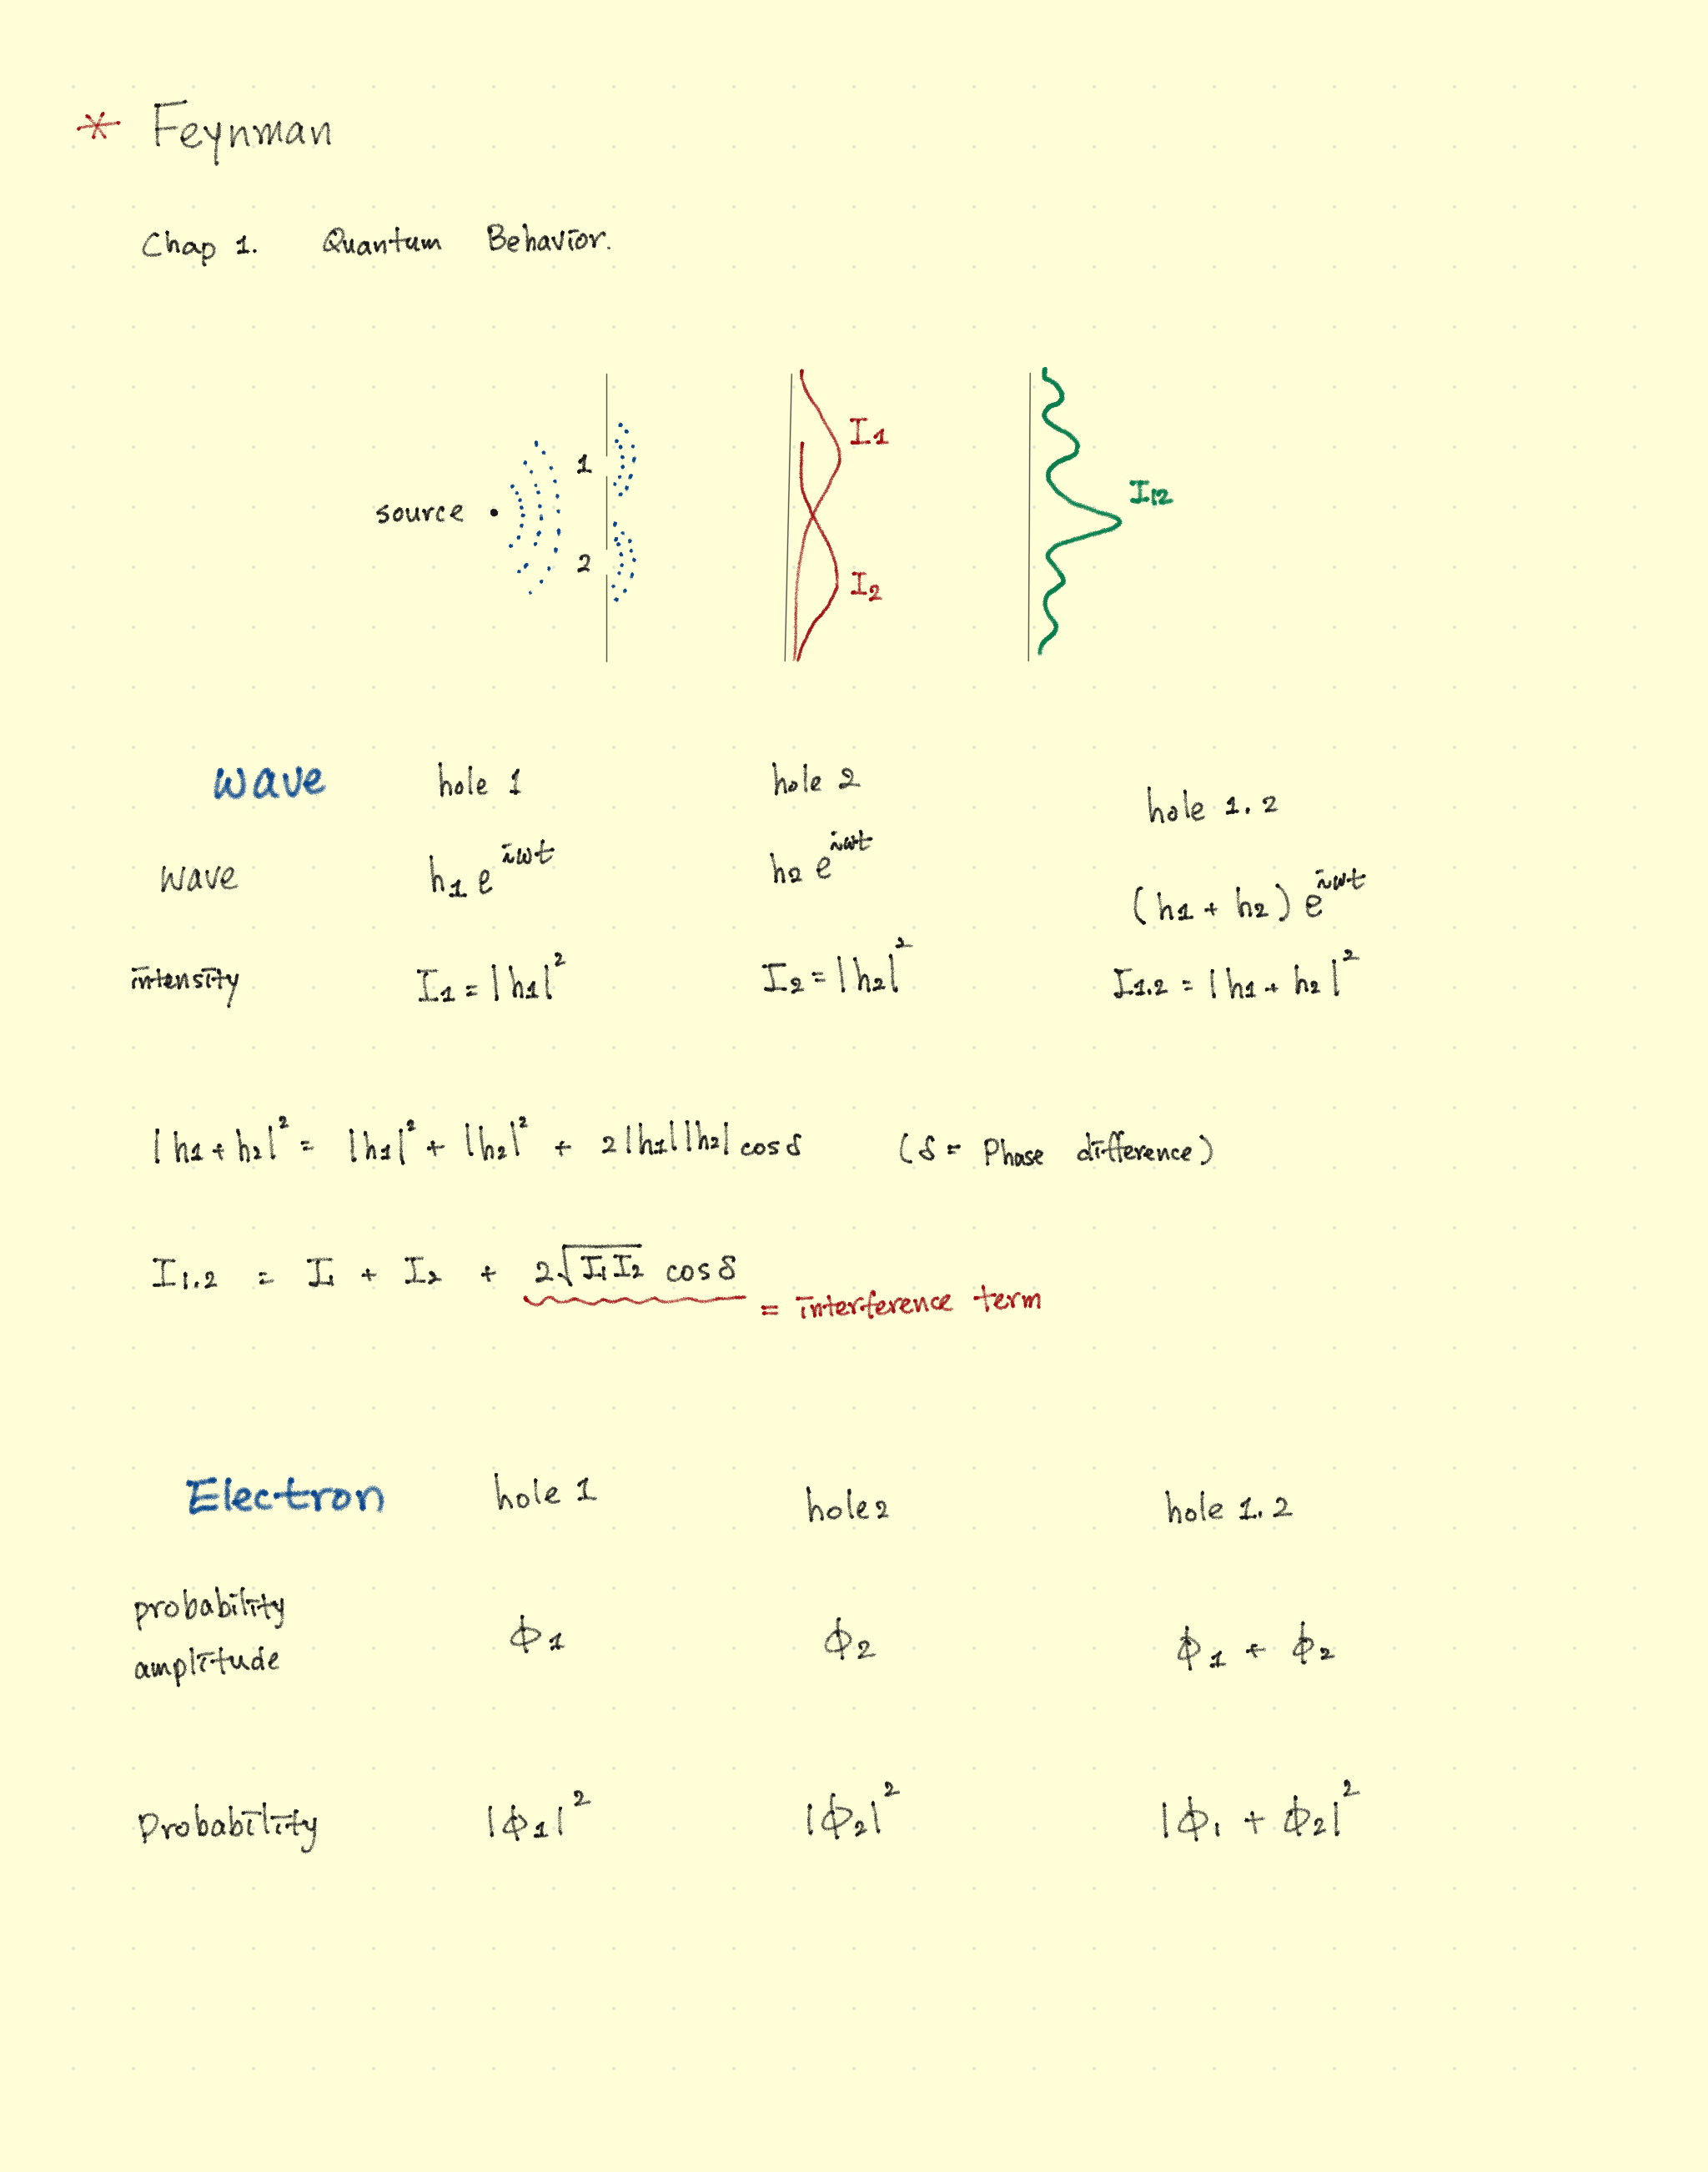 * Feynman
Chap 1. Quantum Behavior.
source
1
2
I1
I2
I12
wave hole 1 hole 2 hole 1.2
wave h1 e^iwt h2 e^iwt (h1 + h2) e^iwt
intensity I1 = |h1|^2 I2 = |h2|^2 I1.2 = |h1 + h2|^2
|h1 + h2|^2 = |h1|^2 + |h2|^2 + 2|h1||h2| cos δ (δ = Phase difference)
I1.2 = I1 + I2 + 2√I1 I2 cos δ
= interference term
Electron hole 1 hole 2 hole 1.2
probability
amplitude ϕ1 ϕ2 ϕ1 + ϕ2
Probability |ϕ1|^2 |ϕ2|^2 |ϕ1 + ϕ2|^2